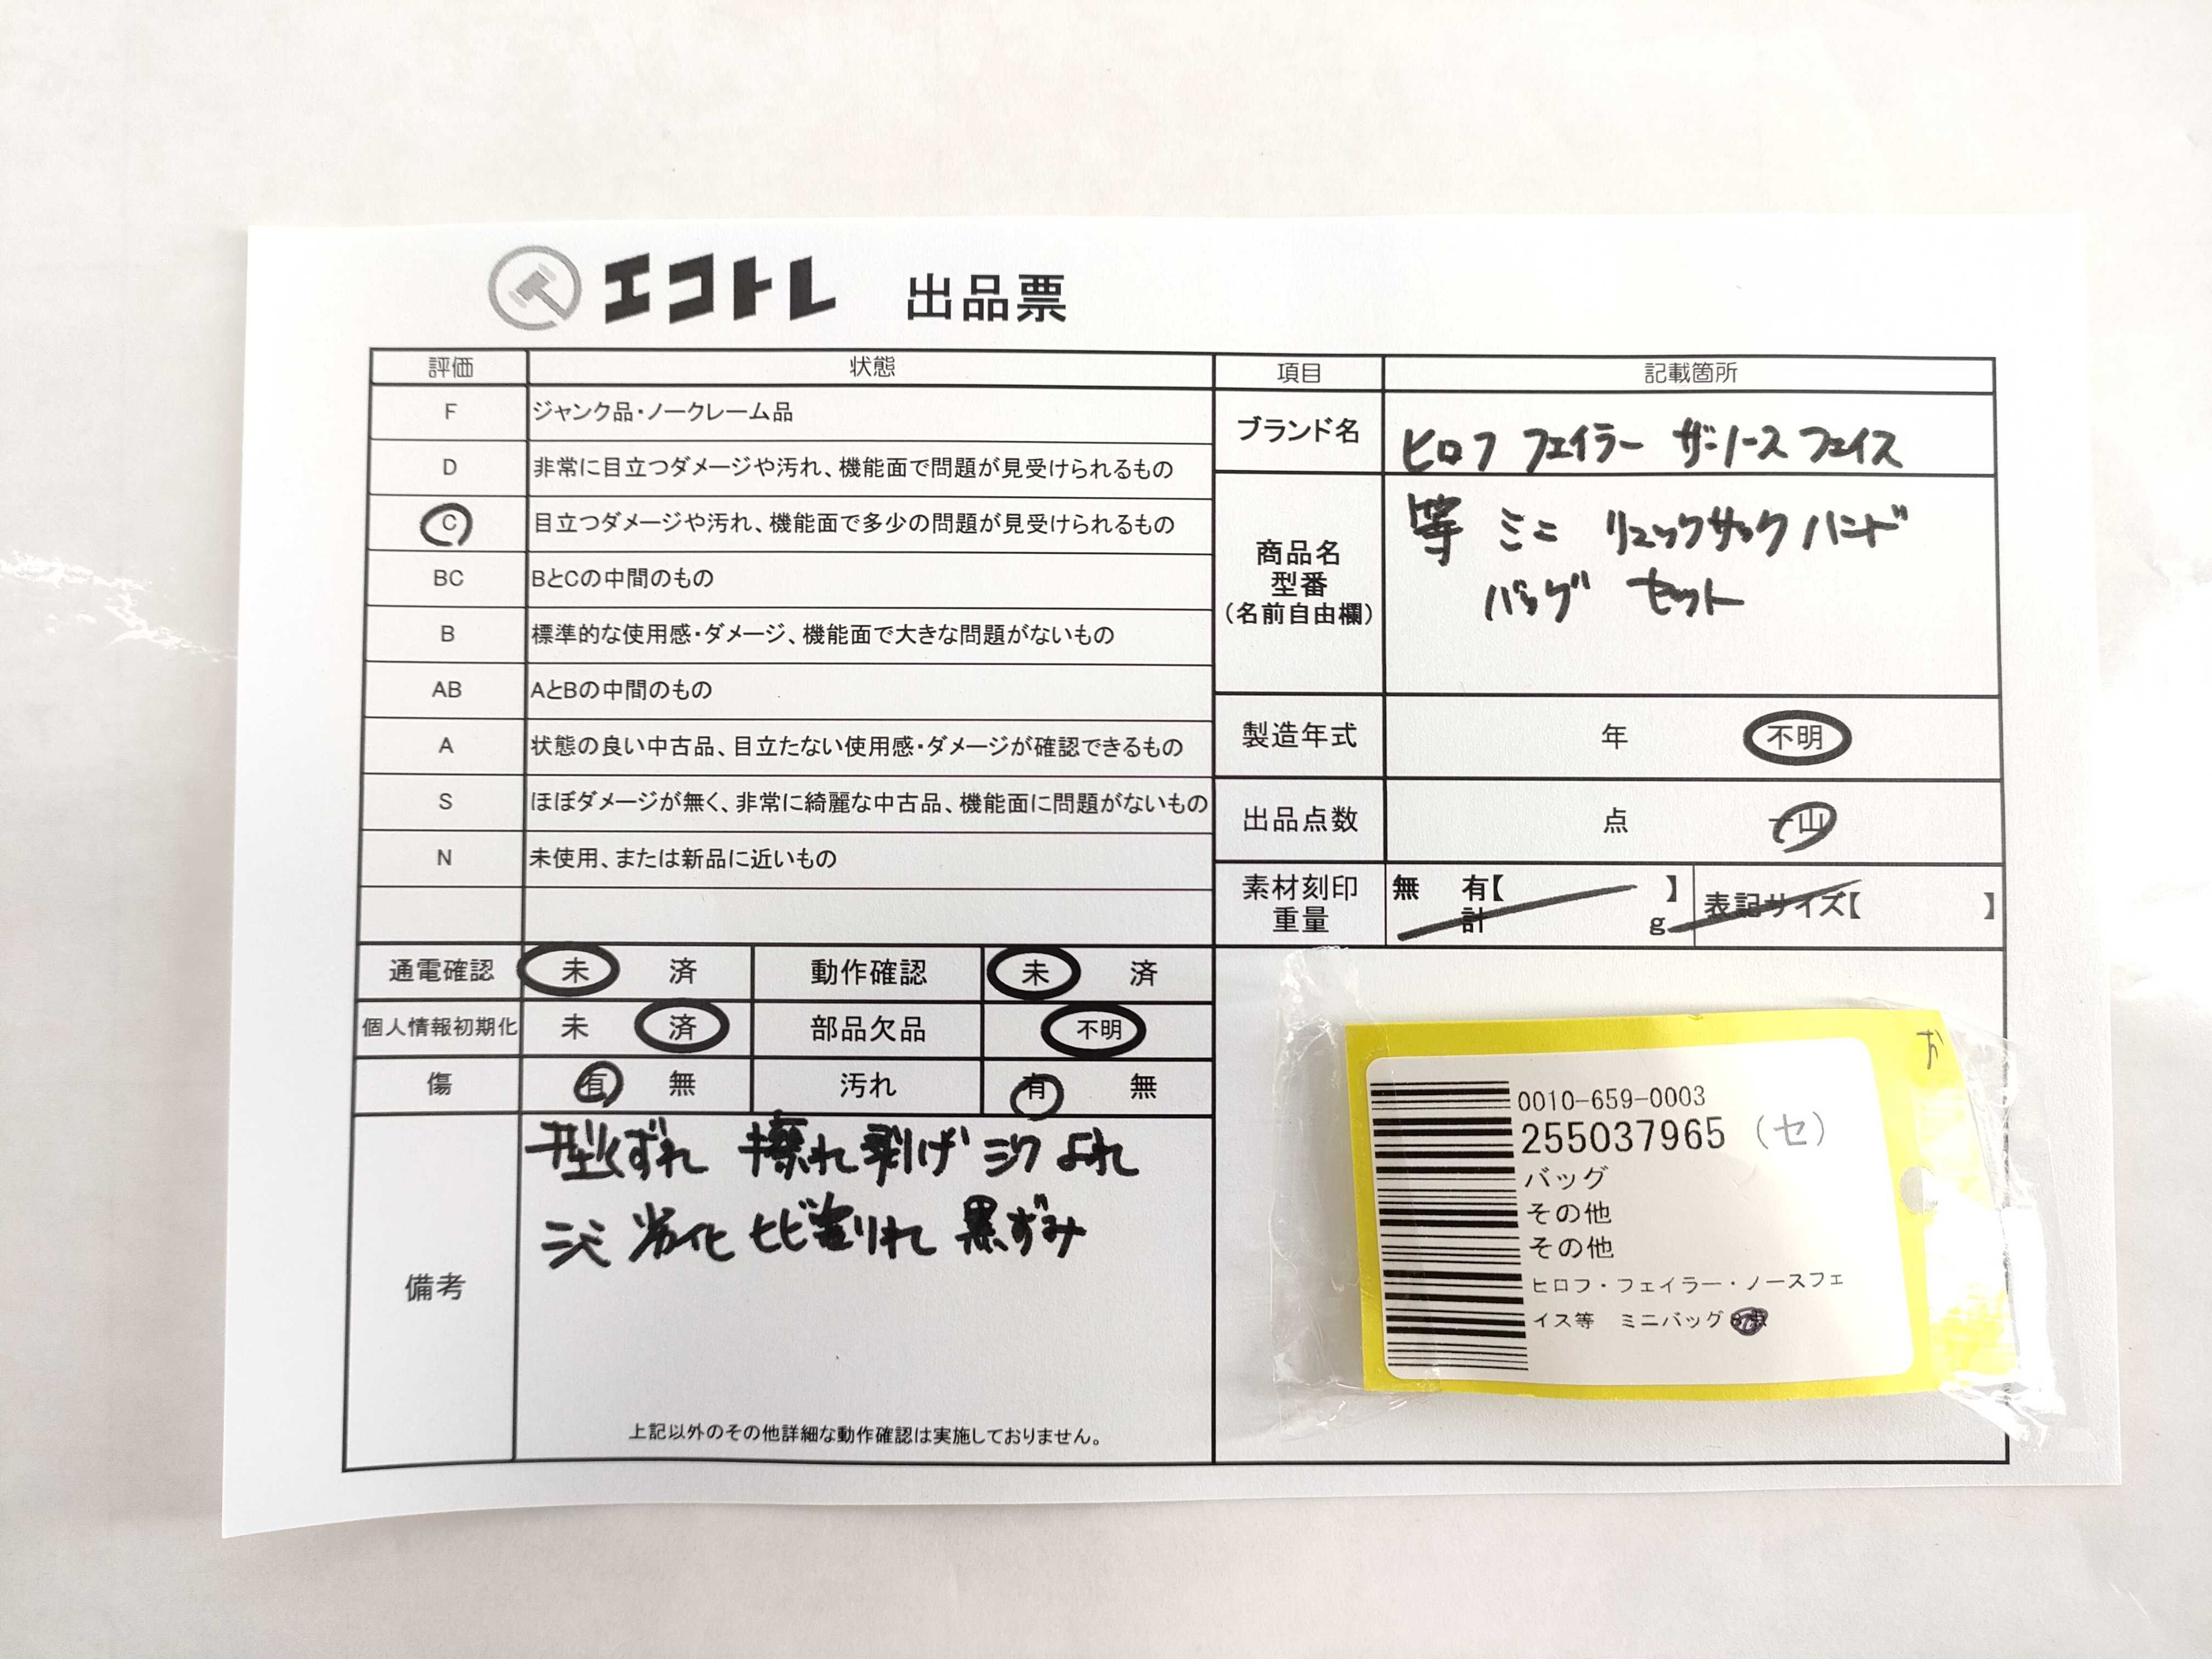 エコトレ 出品票
評価 状態
F ジャンク品・ノークレーム品
D 非常に目立つダメージや汚れ、機能面で問題が見受けられるもの
C 目立つダメージや汚れ、機能面で多少の問題が見受けられるもの
BC BとCの中間のもの
B 標準的な使用感・ダメージ、機能面で大きな問題がないもの
AB AとBの中間のもの
A 状態の良い中古品、目立たない使用感・ダメージが確認できるもの
S ほぼダメージが無く、非常に綺麗な中古品、機能面に問題がないもの
N 未使用、または新品に近いもの
通電確認 未 済 動作確認 未 済
個人情報初期化 未 済 部品欠品 不明
傷 有 無 汚れ 有 無
備考
型くずれ 擦れ 剥げ シワ よれ
シミ 劣化 ヒビ割れ 黒ずみ
上記以外のその他詳細な動作確認は実施しておりません。
項目 記載箇所
ブランド名 ヒロフ フェイラー ザ・ノースフェイス
商品名
型番
(名前自由欄)
等 ミニ リュックサック ハンド
バッグ セット
製造年式 年 不明
出品点数 点 一山
素材刻印
重量
無 有【 】
計 g
表記サイズ【 】
0010-659-0003
255037965 (セ)
バッグ
その他
その他
ヒロフ・フェイラー・ノースフェ
イス等 ミニバッグ